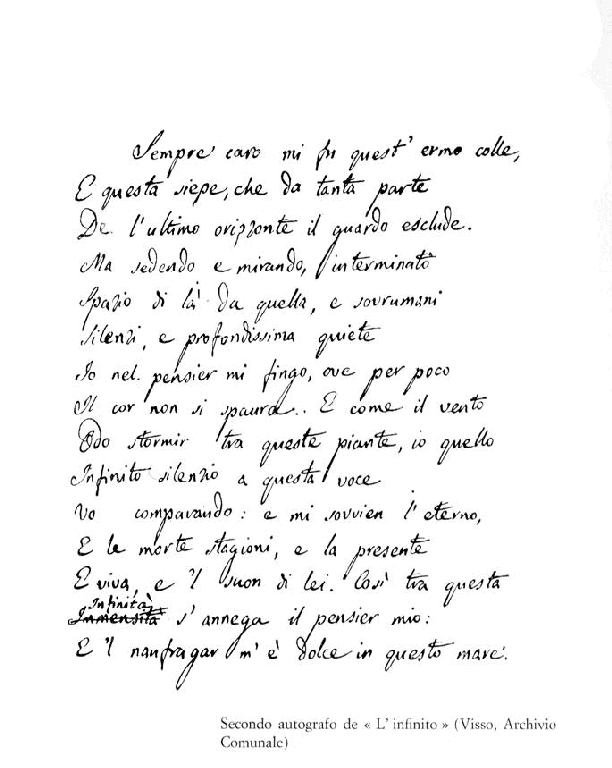 Sempre caro mi fu quest' ermo colle,
E questa siepe, che da tanta parte
De l'ultimo orizzonte il guardo esclude.
Ma sedendo e mirando, interminato
Spazio di là da quella, e sovrumani
Silenzi, e profondissima quiete
Io nel pensier mi fingo, ove per poco
Il cor non si spaura. E come il vento
Odo stormir tra queste piante, io quello
Infinito silenzio a questa voce
Vo comparando: e mi sovvien l'eterno,
E le morte stagioni, e la presente
E viva, e 'l suon di lei. Così tra questa
Infinità
Immensità s'annega il pensier mio:
E 'l naufragar m'è dolce in questo mare.
Secondo autografo de « L' infinito » (Visso, Archivio
Comunale)